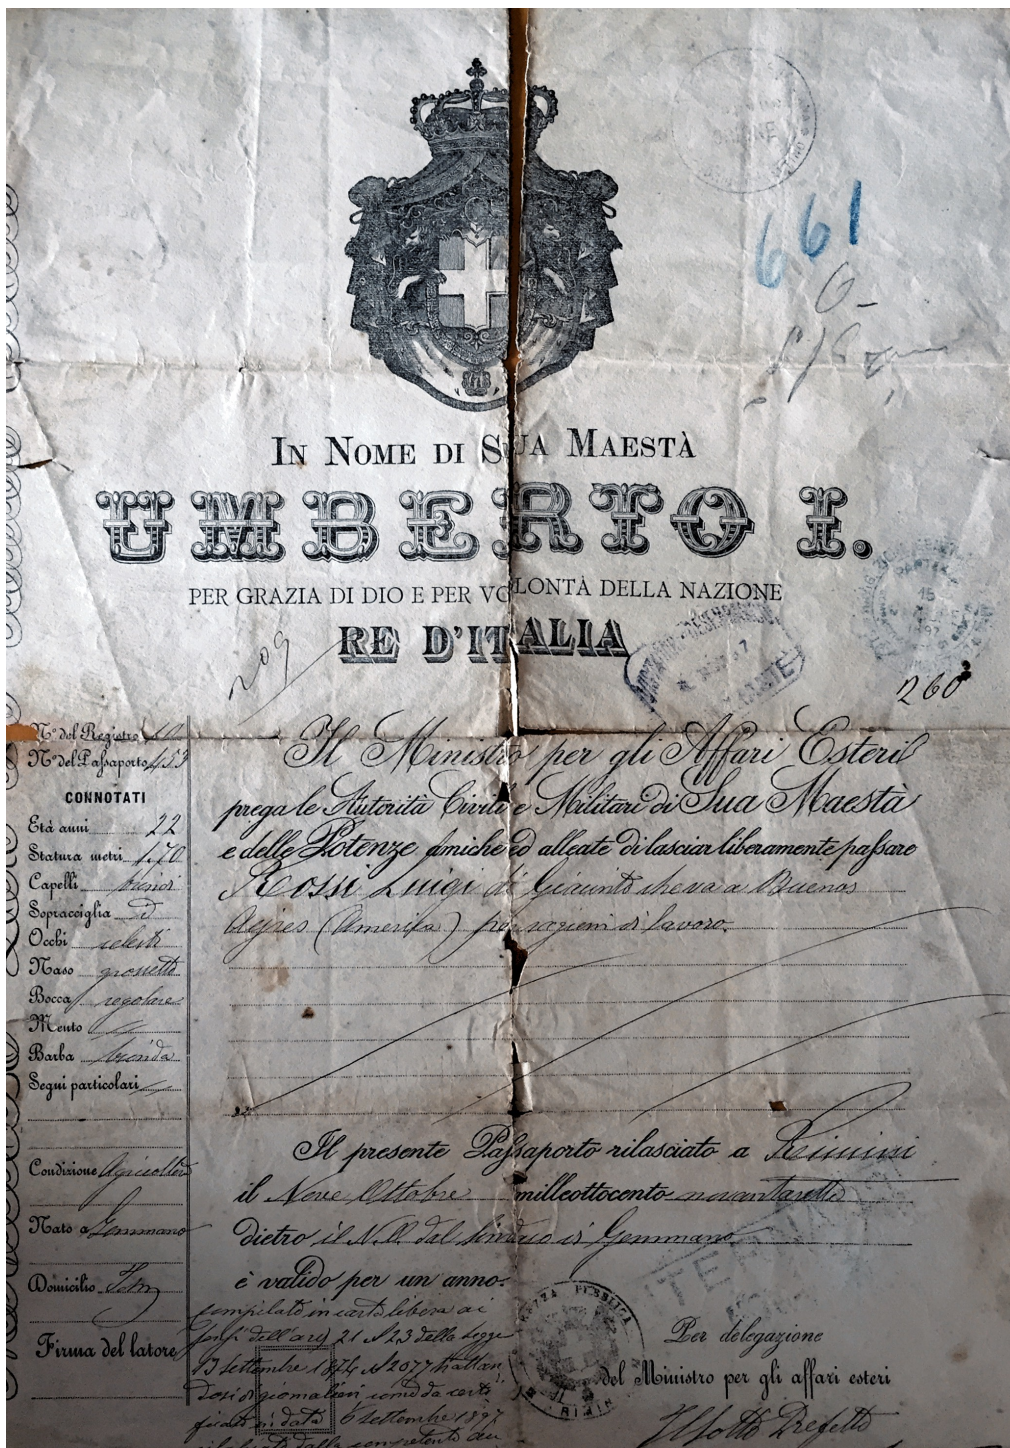 661
6-
IN NOME DI SUA MAESTÀ
UMBERTO I.
PER GRAZIA DI DIO E PER VOLONTÀ DELLA NAZIONE
RE D'ITALIA
209
260
N.º del Registro 10
N.º del Passaporto 453
CONNOTATI
Età anni 22
Statura metri 1.70
Capelli biondi
Sopracciglia id
Occhi celesti
Naso grossetto
Bocca regolare
Mento
Barba bionda
Segni particolari
Condizione Agricoltore
Nato a Gemmano
Domicilio Idem
Firma del latore
Il Ministro per gli Affari Esteri
prega le Autorità Civili e Militari di Sua Maestà
e delle Potenze Amiche ed alleate di lasciar liberamente passare
Rossi Luigi di Giacinto che va a Buenos
Ayres (America) per ragioni di lavoro.
Il presente Passaporto rilasciato a Rimini
il Nove Ottobre milleottocento novantasette
dietro il N.O. del Sindaco di Gemmano
è valido per un anno.
compilato in carta libera ai
sensi dell'art 21 N 23 della legge
13 Settembre 1874 N 2077 trattan
dosi di giornalieri come da certi
ficato in data 6 Settembre 1897
rilasciato dalla competente au
Per delegazione
del Ministro per gli affari esteri
Il Sotto Prefetto